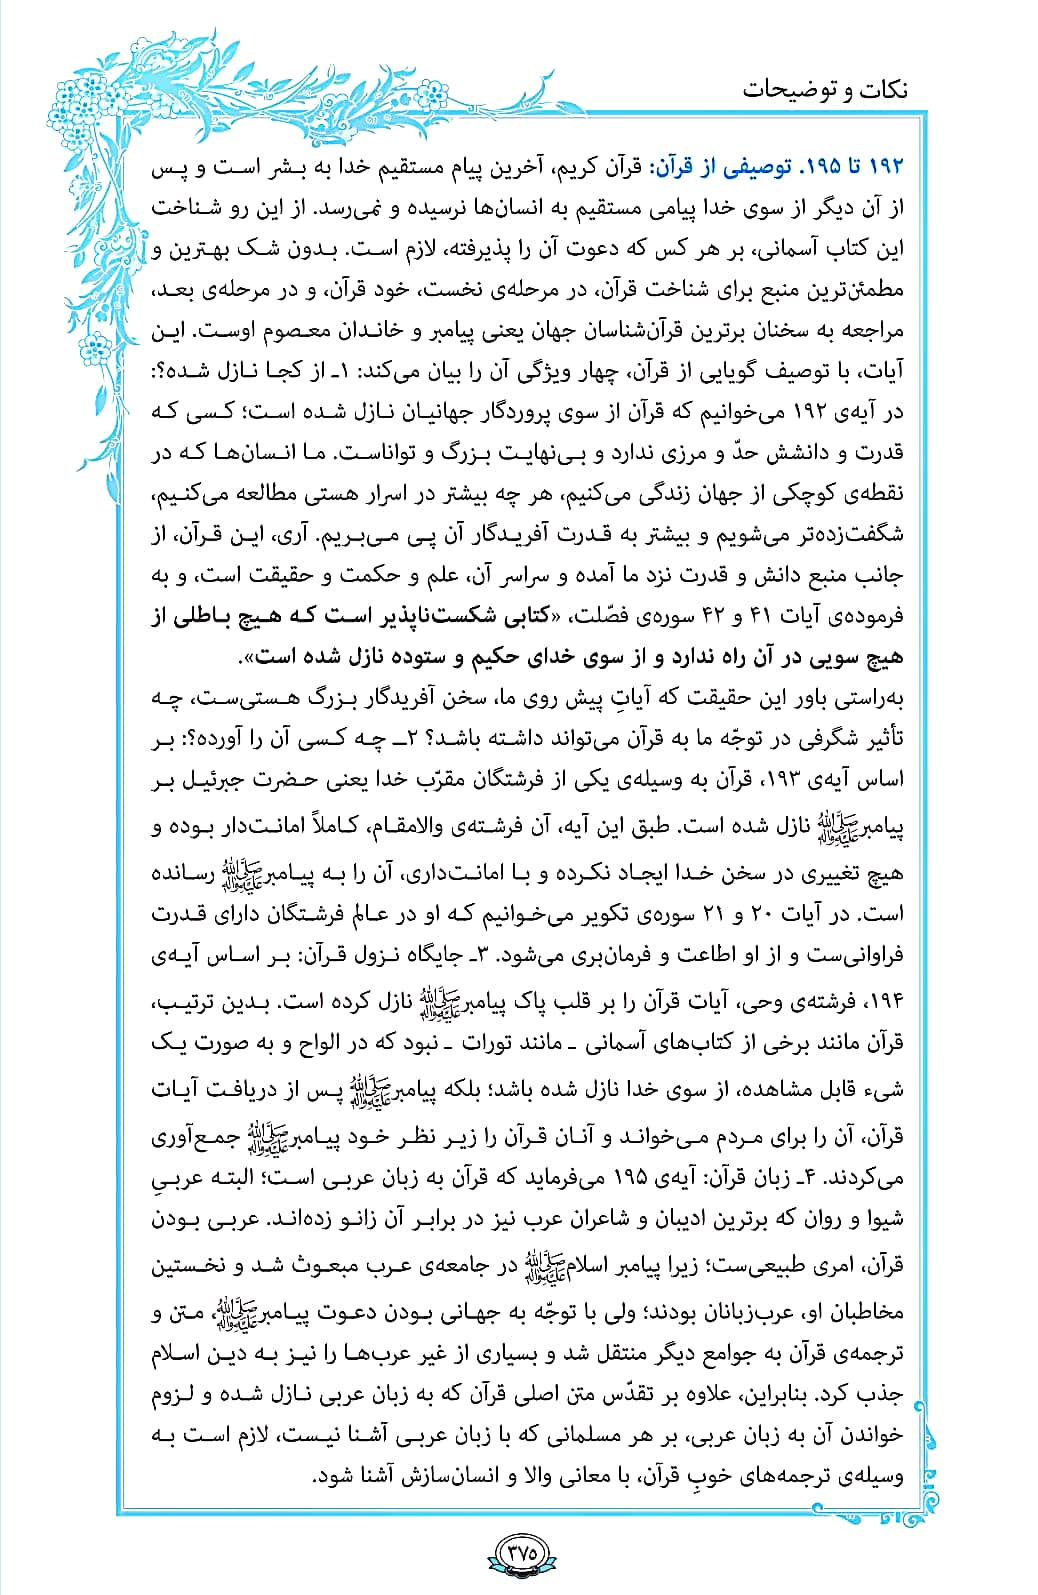 نکات و توضیحات
۱۹۲ تا ۱۹۵. توصیفی از قرآن: قرآن کریم، آخرین پیام مستقیم خدا به بشر است و پس
از آن دیگر از سوی خدا پیامی مستقیم به انسان‌ها نرسیده و نمی‌رسد. از این رو شناخت
این کتاب آسمانی، بر هر کس که دعوت آن را پذیرفته، لازم است. بدون شک بهترین و
مطمئن‌ترین منبع برای شناخت قرآن، در مرحله‌ی نخست، خود قرآن، و در مرحله‌ی بعد،
مراجعه به سخنان برترین قرآن‌شناسان جهان یعنی پیامبر و خاندان معصوم اوست. این
آیات، با توصیف گویایی از قرآن، چهار ویژگی آن را بیان می‌کند: ۱ـ از کجا نازل شده؟:
در آیه‌ی ۱۹۲ می‌خوانیم که قرآن از سوی پروردگار جهانیان نازل شده است؛ کسی که
قدرت و دانشش حدّ و مرزی ندارد و بی‌نهایت بزرگ و تواناست. ما انسان‌ها که در
نقطه‌ی کوچکی از جهان زندگی می‌کنیم، هر چه بیشتر در اسرار هستی مطالعه می‌کنیم،
شگفت‌زده‌تر می‌شویم و بیشتر به قدرت آفریدگار آن پی می‌بریم. آری، این قرآن، از
جانب منبع دانش و قدرت نزد ما آمده و سراسر آن، علم و حکمت و حقیقت است، و به
فرموده‌ی آیات ۴۱ و ۴۲ سوره‌ی فصّلت، «کتابی شکست‌ناپذیر است که هیچ باطلی از
هیچ سویی در آن راه ندارد و از سوی خدای حکیم و ستوده نازل شده است».
به‌راستی باور این حقیقت که آیاتِ پیش روی ما، سخن آفریدگار بزرگ هستی‌ست، چه
تأثیر شگرفی در توجّه ما به قرآن می‌تواند داشته باشد؟ ۲ـ چه کسی آن را آورده؟: بر
اساس آیه‌ی ۱۹۳، قرآن به وسیله‌ی یکی از فرشتگان مقرّب خدا یعنی حضرت جبرئیل بر
پیامبرﷺ نازل شده است. طبق این آیه، آن فرشته‌ی والامقام، کاملاً امانت‌دار بوده و
هیچ تغییری در سخن خدا ایجاد نکرده و با امانت‌داری، آن را به پیامبرﷺ رسانده
است. در آیات ۲۰ و ۲۱ سوره‌ی تکویر می‌خوانیم که او در عالم فرشتگان دارای قدرت
فراوانی‌ست و از او اطاعت و فرمان‌بری می‌شود. ۳ـ جایگاه نزول قرآن: بر اساس آیه‌ی
۱۹۴، فرشته‌ی وحی، آیات قرآن را بر قلب پاک پیامبرﷺ نازل کرده است. بدین ترتیب،
قرآن مانند برخی از کتاب‌های آسمانی ـ مانند تورات ـ نبود که در الواح و به صورت یک
شیء قابل مشاهده، از سوی خدا نازل شده باشد؛ بلکه پیامبرﷺ پس از دریافت آیات
قرآن، آن را برای مردم می‌خواند و آنان قرآن را زیر نظر خود پیامبرﷺ جمع‌آوری
می‌کردند. ۴ـ زبان قرآن: آیه‌ی ۱۹۵ می‌فرماید که قرآن به زبان عربی است؛ البته عربیِ
شیوا و روان که برترین ادیبان و شاعران عرب نیز در برابر آن زانو زده‌اند. عربی بودن
قرآن، امری طبیعی‌ست؛ زیرا پیامبر اسلامﷺ در جامعه‌ی عرب مبعوث شد و نخستین
مخاطبان او، عرب‌زبانان بودند؛ ولی با توجّه به جهانی بودن دعوت پیامبرﷺ، متن و
ترجمه‌ی قرآن به جوامع دیگر منتقل شد و بسیاری از غیر عرب‌ها را نیز به دین اسلام
جذب کرد. بنابراین، علاوه بر تقدّس متن اصلی قرآن که به زبان عربی نازل شده و لزوم
خواندن آن به زبان عربی، بر هر مسلمانی که با زبان عربی آشنا نیست، لازم است به
وسیله‌ی ترجمه‌های خوبِ قرآن، با معانی والا و انسان‌سازش آشنا شود.
۳۷۵